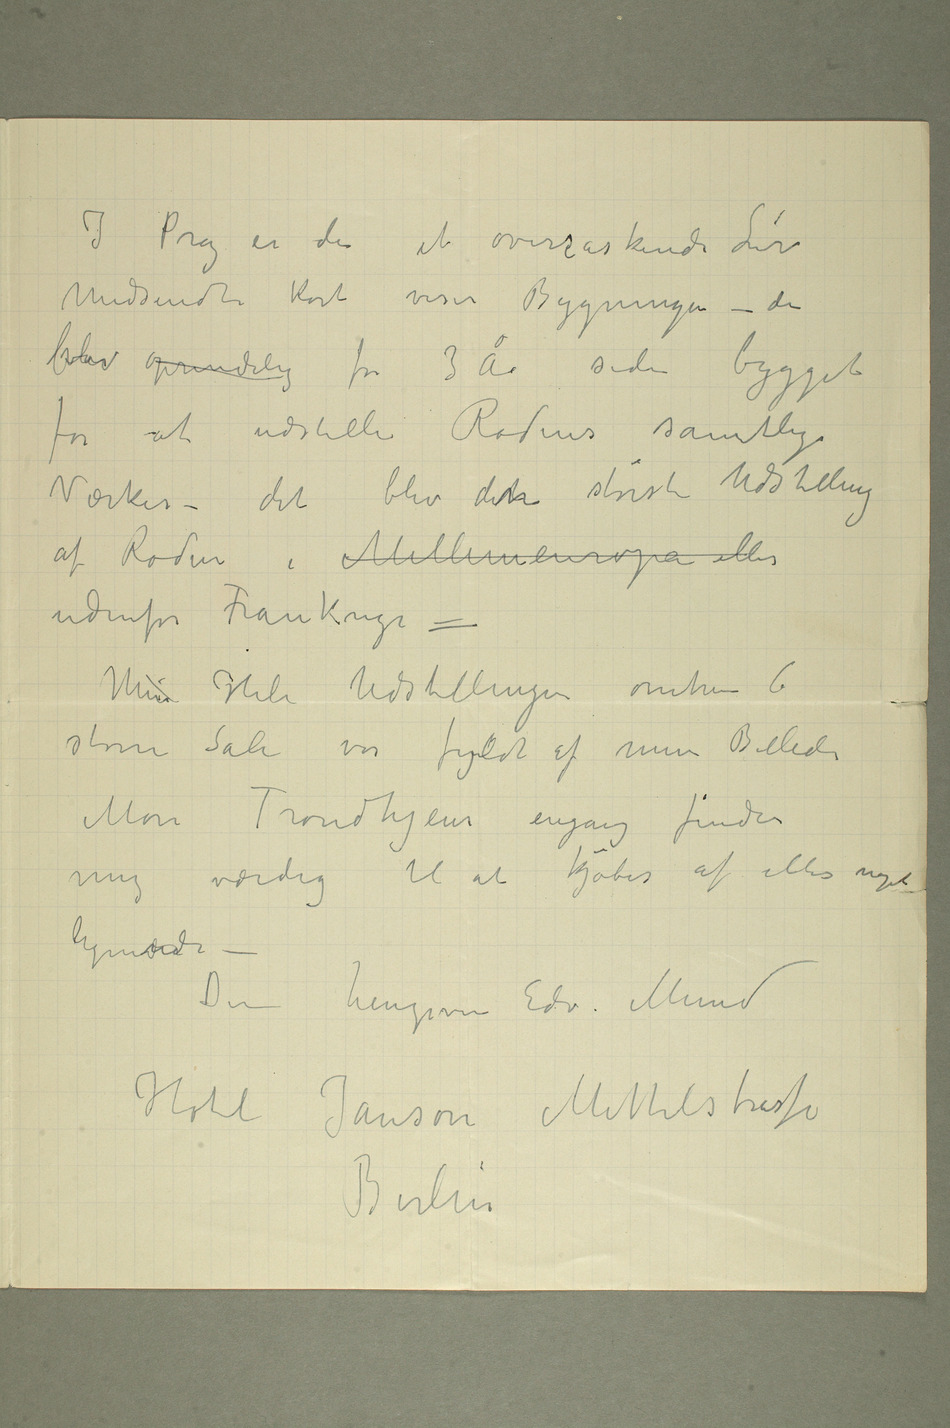 I Prag er der et overraskende Liv
Medsendte Kort viser Bygningen – den
blev oprindelig for 3 År siden bygget
for at udstille Rodins samtlige
Værker – det blev den störste Udstilling
af Rodin i Mellemeuropa eller
udenfor Frankrige =
Min Hele Udstillingen omtren 6
store Sale var fyldt af mine Billeder
Mon Trondhjem engang finder
mig værdig til at kjöbes af eller noget
lignende –
Din hengivne Edv. Munch
Hotel Janson Mittelstrasse
Berlin